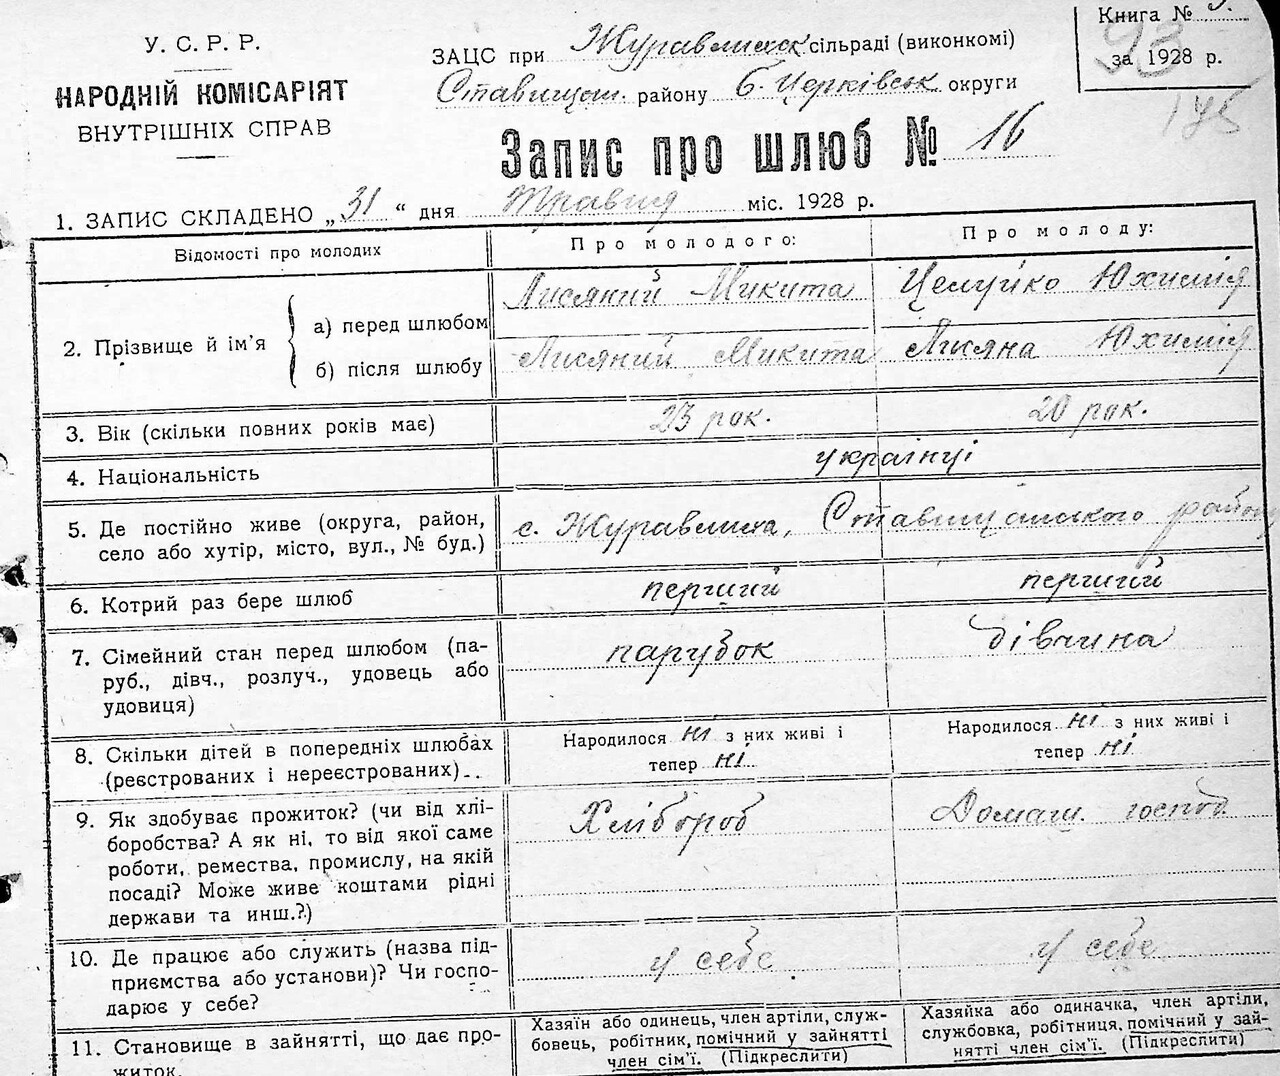 У. С. Р. Р.
НАРОДНІЙ КОМІСАРІЯТ
ВНУТРІШНІХ СПРАВ
ЗАЦС при Журавлиск сільраді (виконкомі)
Ставищан. району Б. Церківськ округи
Книга №
за 1928 р.
93
Запис про шлюб № 16
1. ЗАПИС СКЛАДЕНО „31“ дня травня міс. 1928 р.
Відомості про молодих
Про молодого:
Про молоду:
2. Прізвище й ім'я
а) перед шлюбом
Лисяний Микита
Целуйко Юхимія
б) після шлюбу
Лисяний Микита
Лисяна Юхимія
3. Вік (скільки повних років має)
23 рок.
20 рок.
4. Національність
українці
5. Де постійно живе (округа, район,
село або хутір, місто, вул., № буд.)
с. Журавлиха, Ставищанського району
6. Котрий раз бере шлюб
перший
перший
7. Сімейний стан перед шлюбом (па-
руб., дівч., розлуч., удовець або
удовиця)
парубок
дівчина
8. Скільки дітей в попередніх шлюбах
(реєстрованих і нереєстрованих)..
Народилося ні з них живі і
тепер ні
Народилося ні з них живі і
тепер ні
9. Як здобуває прожиток? (чи від хлі-
боробства? А як ні, то від якої саме
роботи, ремества, промислу, на якій
посаді? Може живе коштами рідні
держави та инш.?)
Хлібороб
Домаш. господ.
10. Де працює або служить (назва під-
приємства або установи)? Чи госпо-
дарює у себе?
у себе
у себе
11. Становище в зайнятті, що дає про-
житок.
Хазяїн або одинець, член артіли, служ-
бовець, робітник, помічний у зайнятті
член сім'ї. (Підкреслити)
Хазяйка або одиначка, член артіли,
службовка, робітниця, помічний у зай-
нятті член сім'ї. (Підкреслити)